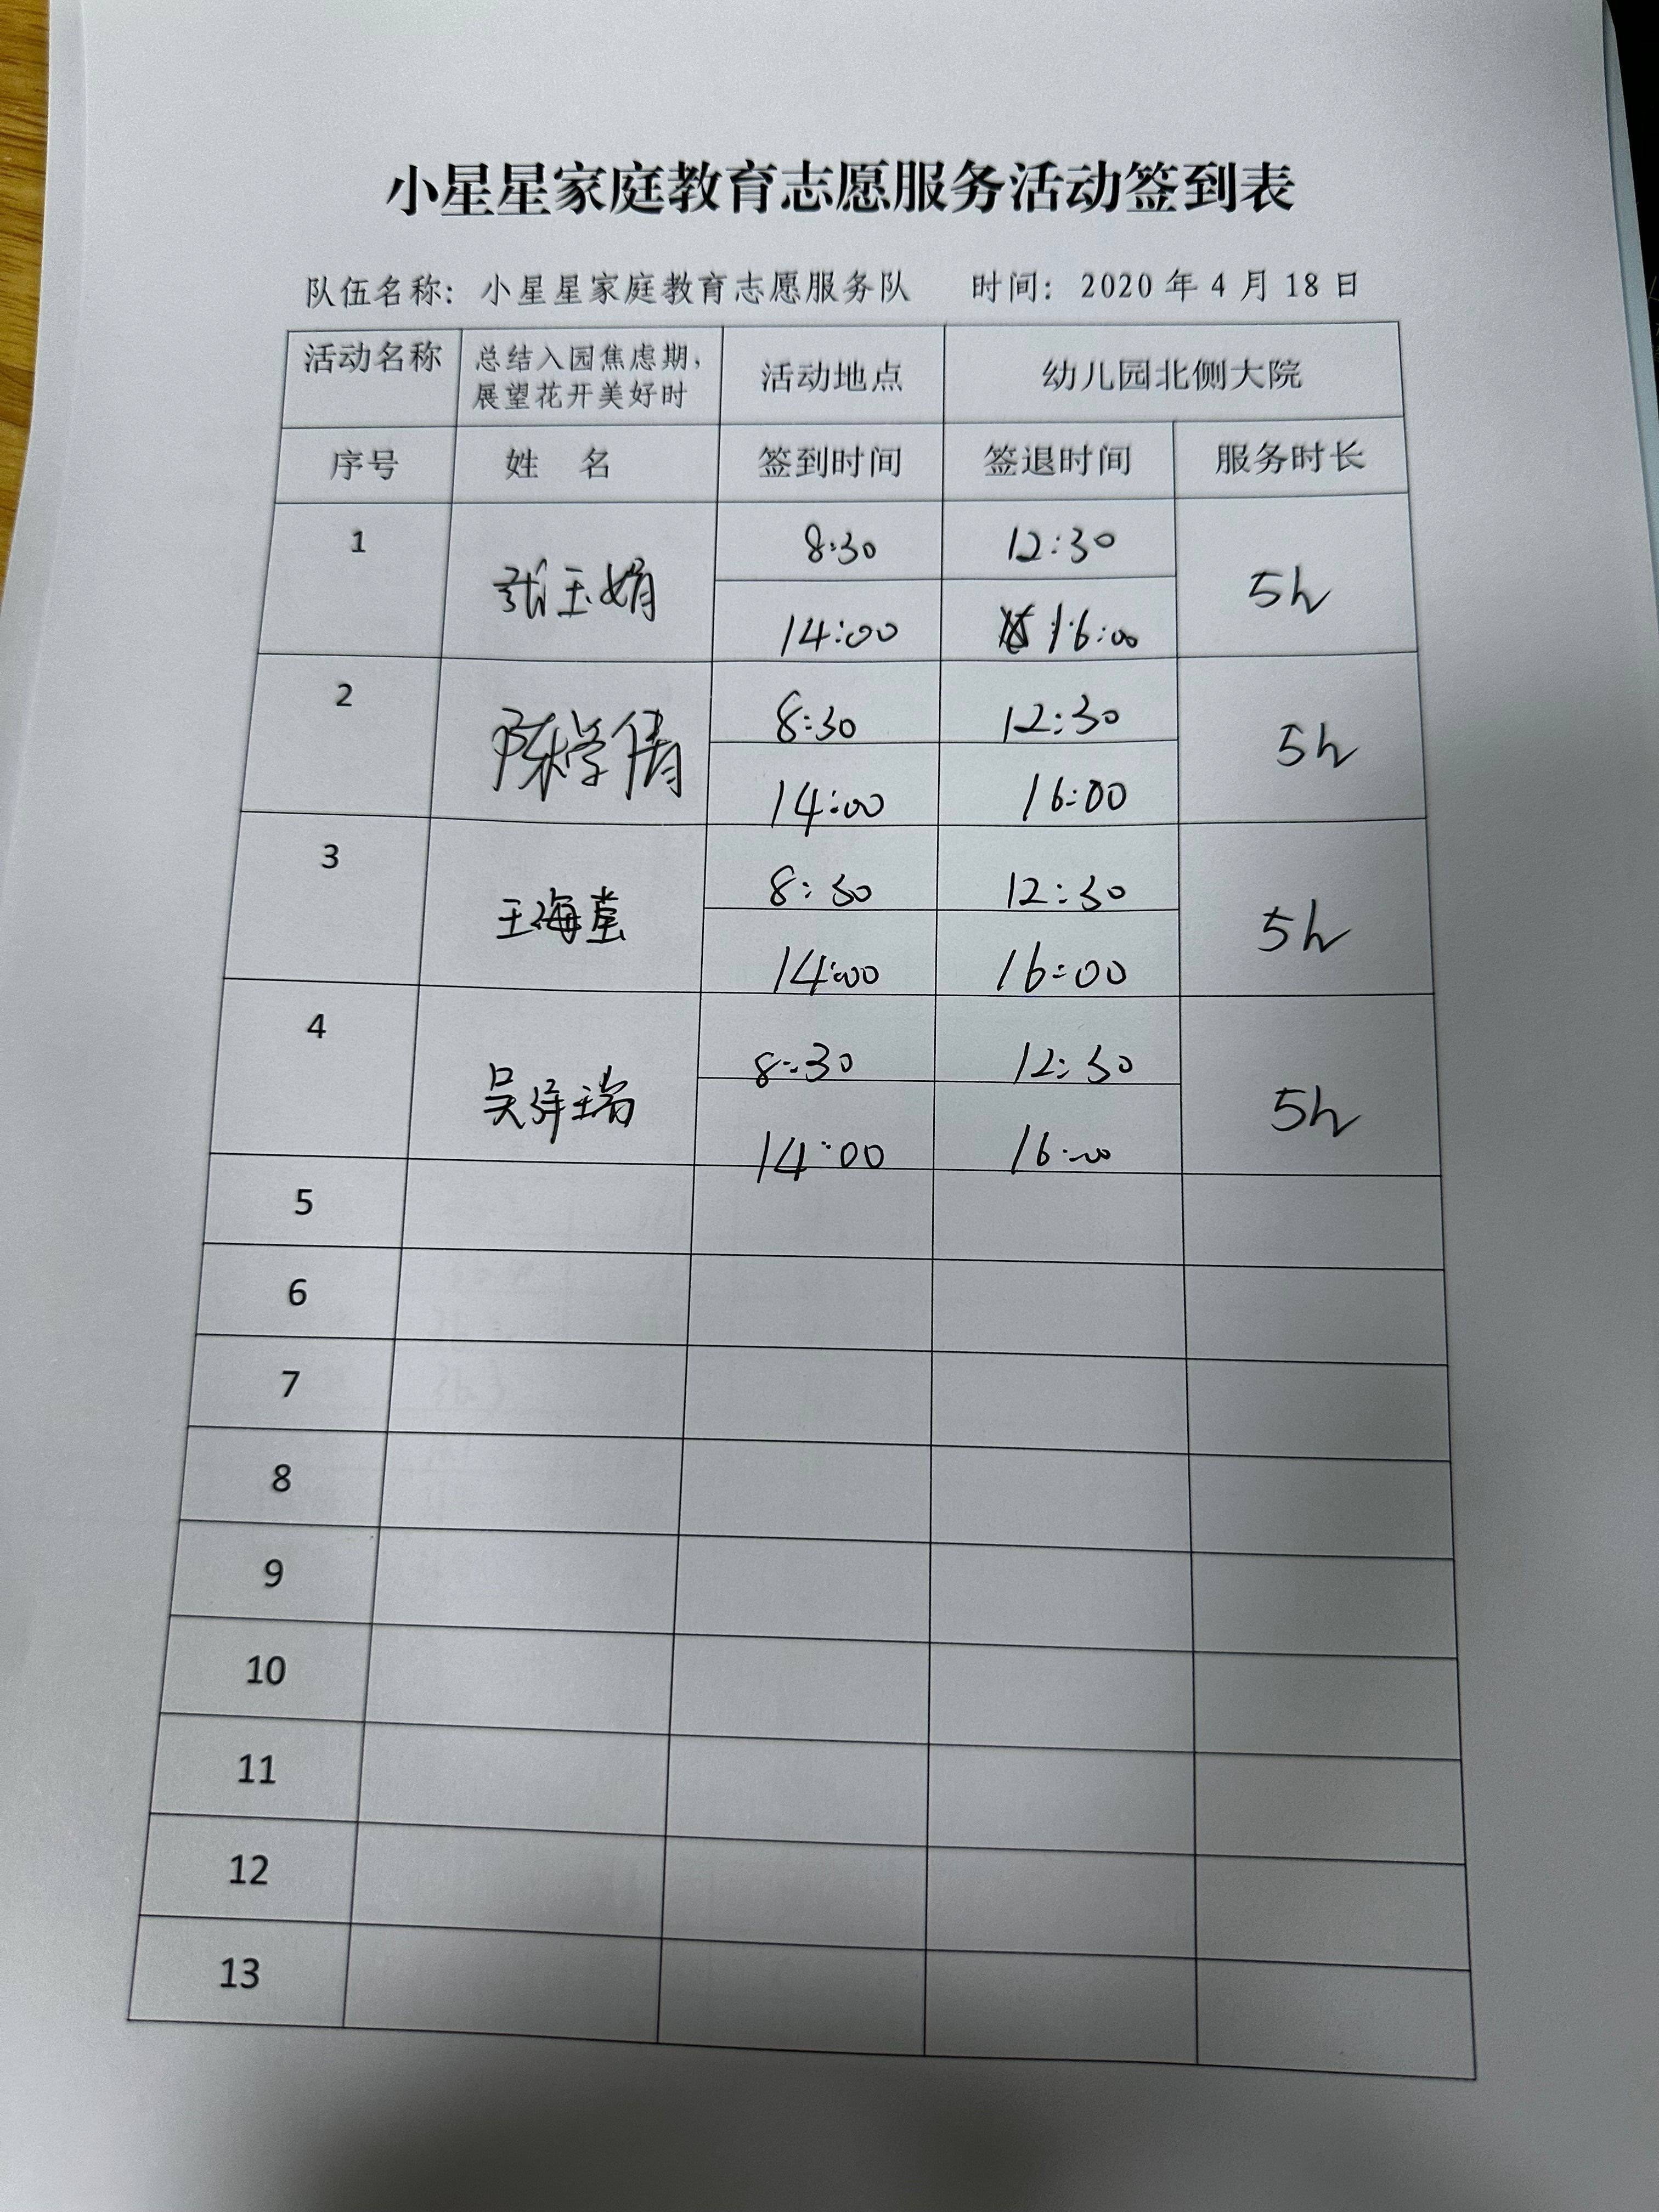 小星星家庭教育志愿服务活动签到表
队伍名称：小星星家庭教育志愿服务队 时间：2020 年 4 月 18 日
活动名称 总结入园焦虑期，展望花开美好时 活动地点 幼儿园北侧大院
序号 姓 名 签到时间 签退时间 服务时长
1 张玉娟 8:30 12:30 5h
14:00 16:00
2 陈学倩 8:30 12:30 5h
14:00 16:00
3 王海 8:30 12:30 5h
14:00 16:00
4 吴 瑞 8:30 12:30 5h
14:00 16:00
5
6
7
8
9
10
11
12
13